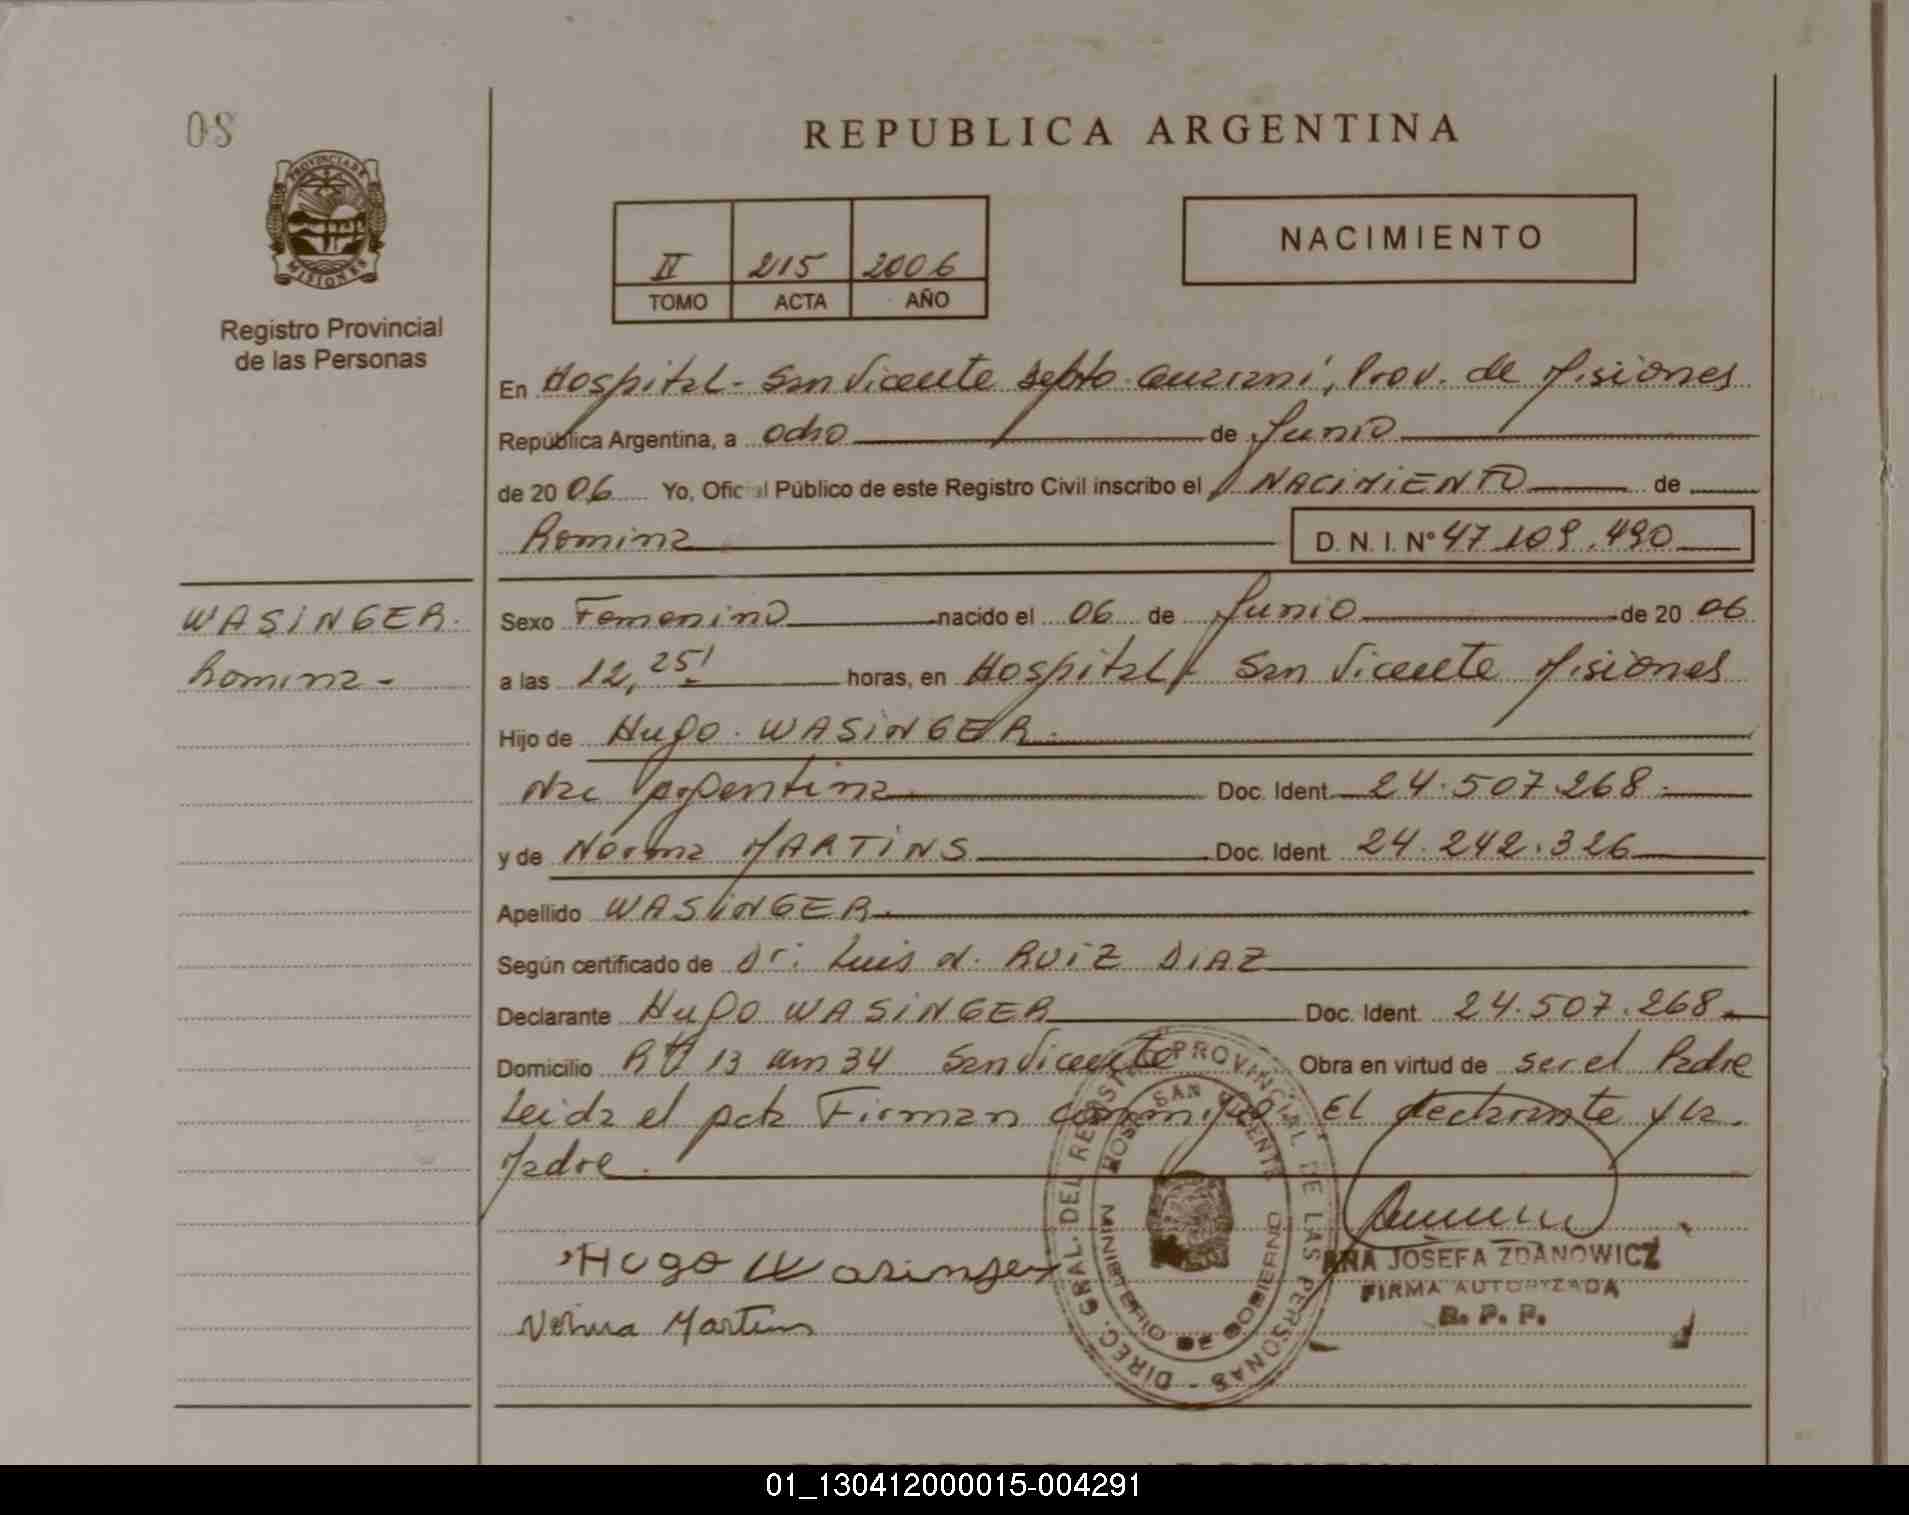 08
REPUBLICA ARGENTINA
PROVINCIA DE
MISIONES
Registro Provincial
de las Personas
II 215 2006
TOMO ACTA AÑO
NACIMIENTO
En Hospital - San Vicente Depto. Guarani, Prov. de Misiones
República Argentina, a ocho de Junio
de 2006 Yo, Oficial Público de este Registro Civil inscribo el NACIMIENTO de
Romina D. N. I. N° 47.109.490
WASINGER.
Romina -
Sexo Femenino nacido el 06 de Junio de 2006
a las 12,25' horas, en Hospital - San Vicente Misiones
Hijo de Hugo. WASINGER.
Nac Argentina Doc. Ident. 24.507.268.
y de Norma MARTINS Doc. Ident. 24.242.326
Apellido WASINGER.
Según certificado de Dr: Luis A. RUIZ DIAZ
Declarante Hugo WASINGER Doc. Ident. 24.507.268
Domicilio 13 Km 34 San Vicente Obra en virtud de ser el Padre
Leida el acta Firman conmigo El declarante y la
Madre.
Hugo Wasinger
Norma Martins
DIREC. GRAL. DEL REGISTRO PROVINCIAL DE LAS PERSONAS -
HOSP. SAN VICENTE
MINISTERIO DE GOBIERNO
ANA JOSEFA ZDANOWICZ
FIRMA AUTORIZADA
R. P. P.
01_130412000015-004291